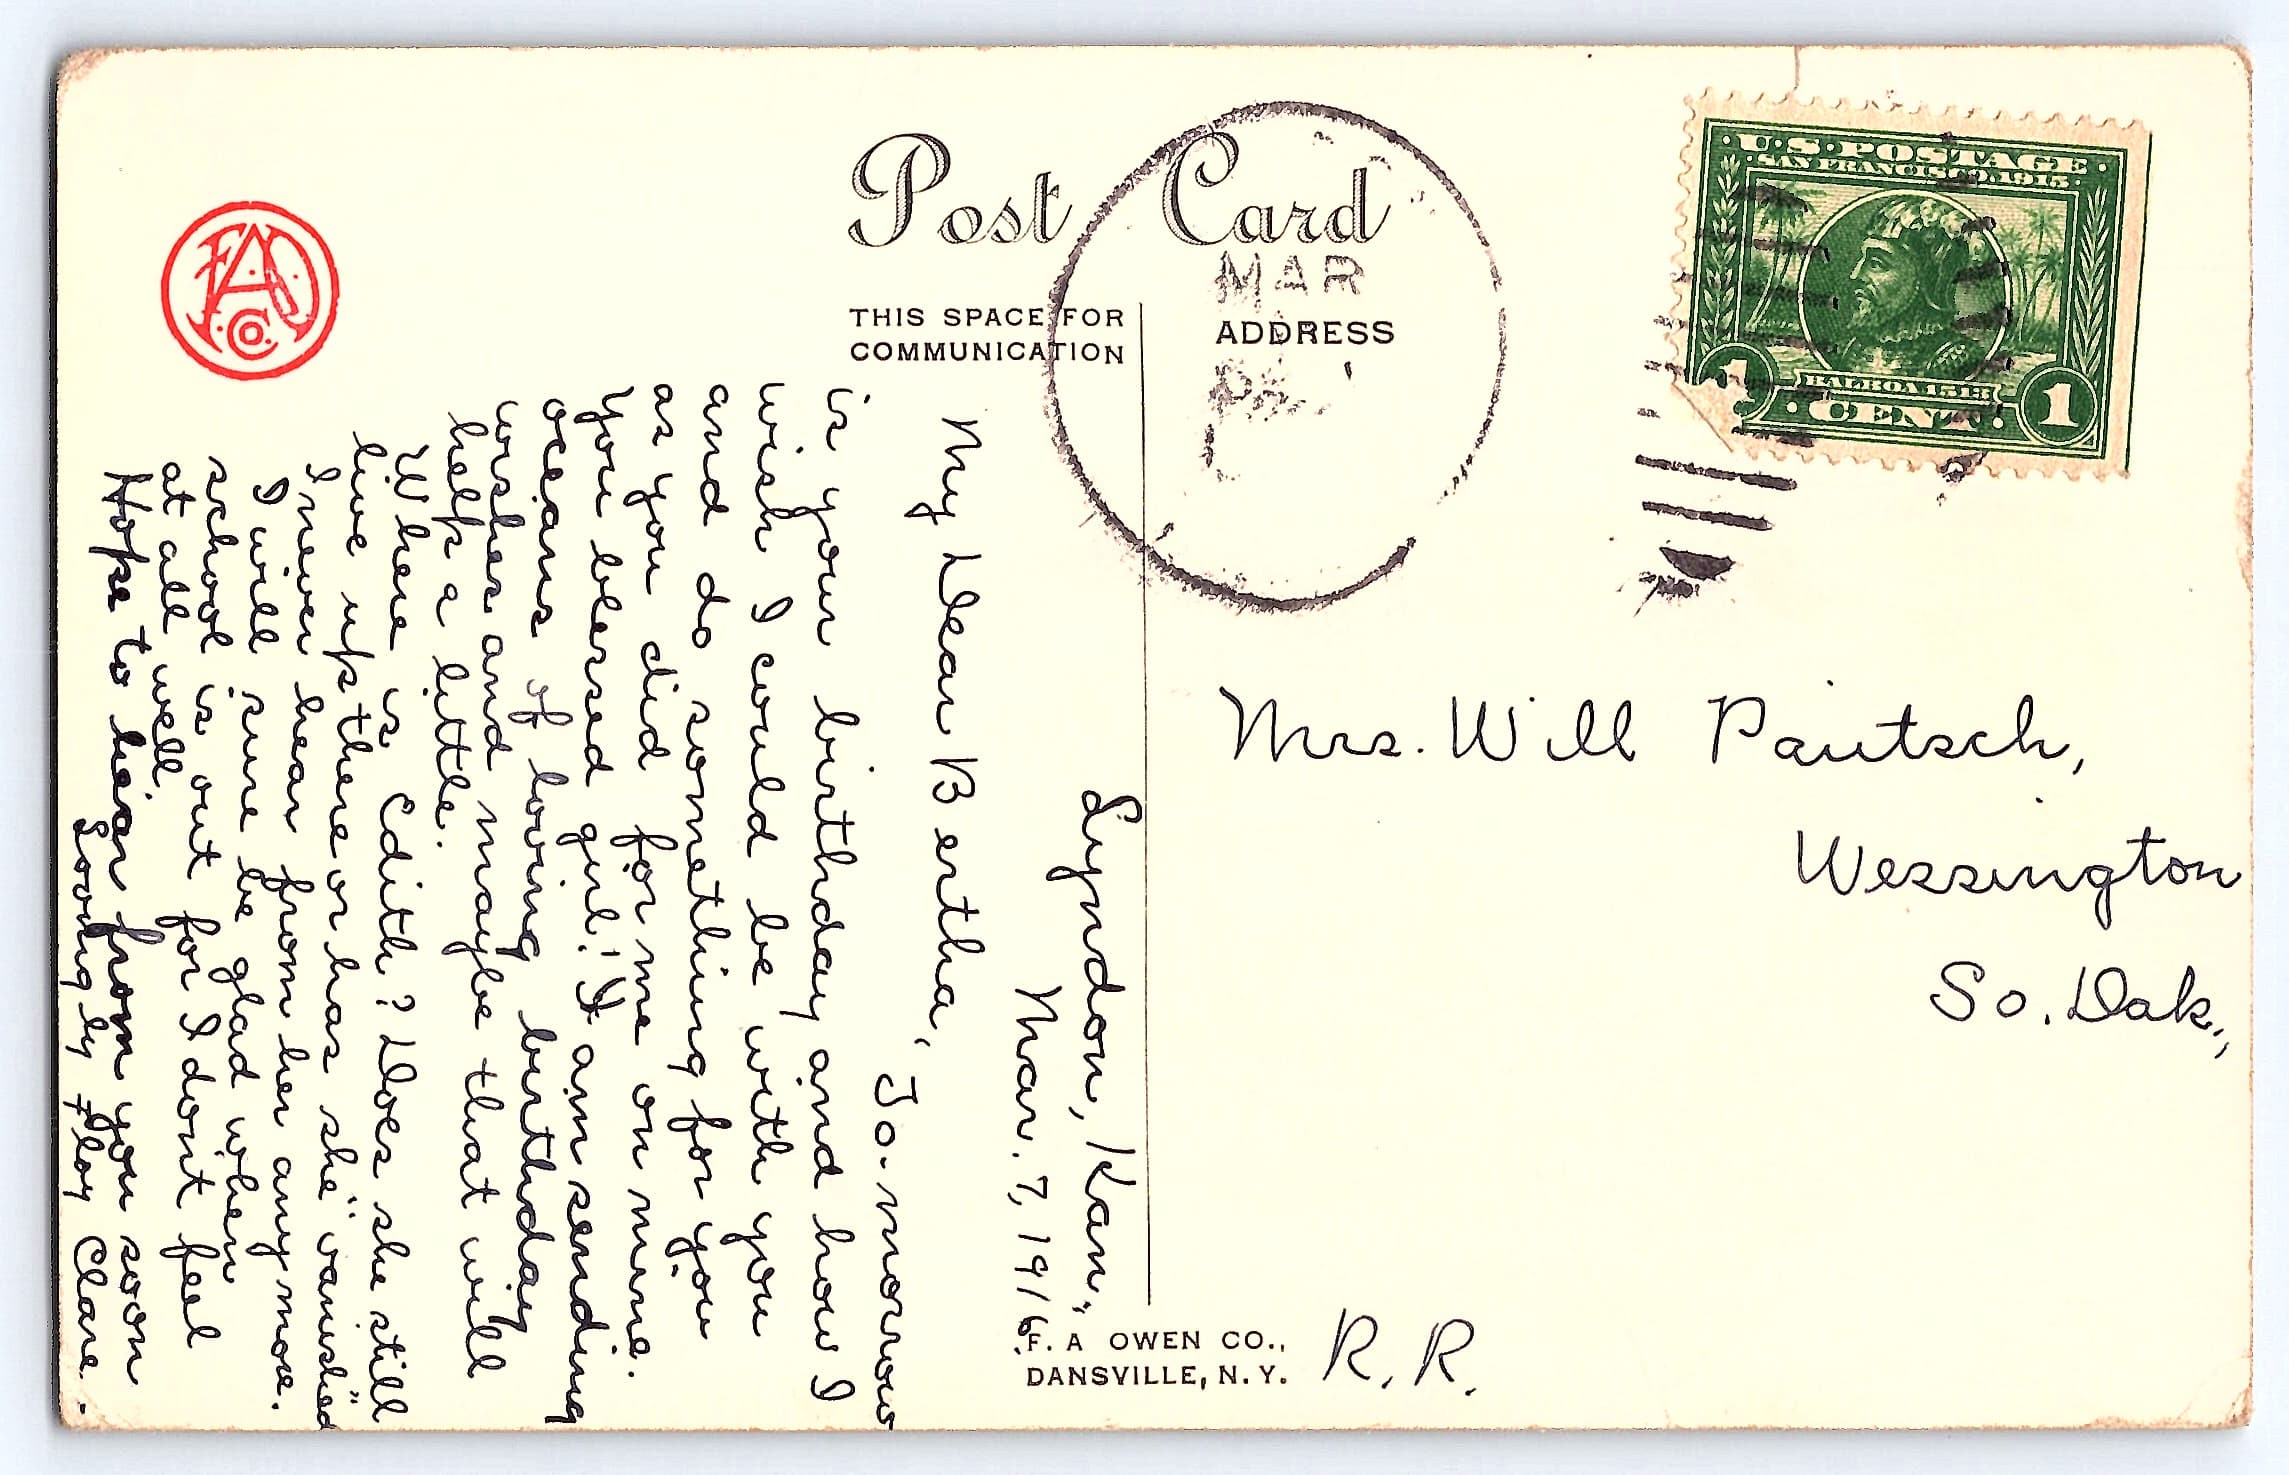 Post Card
THIS SPACE FOR
COMMUNICATION
ADDRESS
MAR
U.S. POSTAGE
SAN FRANCISCO 1915
BALBOA 1513
1 CENT 1
FAO Co.
Mrs. Will Pautsch,
Wessington
So. Dak.,
R. R.
F. A OWEN CO.,
DANSVILLE, N. Y.
Lyndon, Kan.,
Mar. 7, 1916.
My Dear Bertha,
To-morrow
is your birthday and how I
wish I could be with you
and do something for you
as you did for me on mine.
You blessed girl! I am sending
oceans of loving birthday
wishes and maybe that will
help a little.
Where is Edith? Does she still
live up there or has she "vanished"
I never hear from her any more.
I will sure be glad when
school is out for I dont feel
at all well.
Hope to hear from you soon
Lovingly Floy Clare.